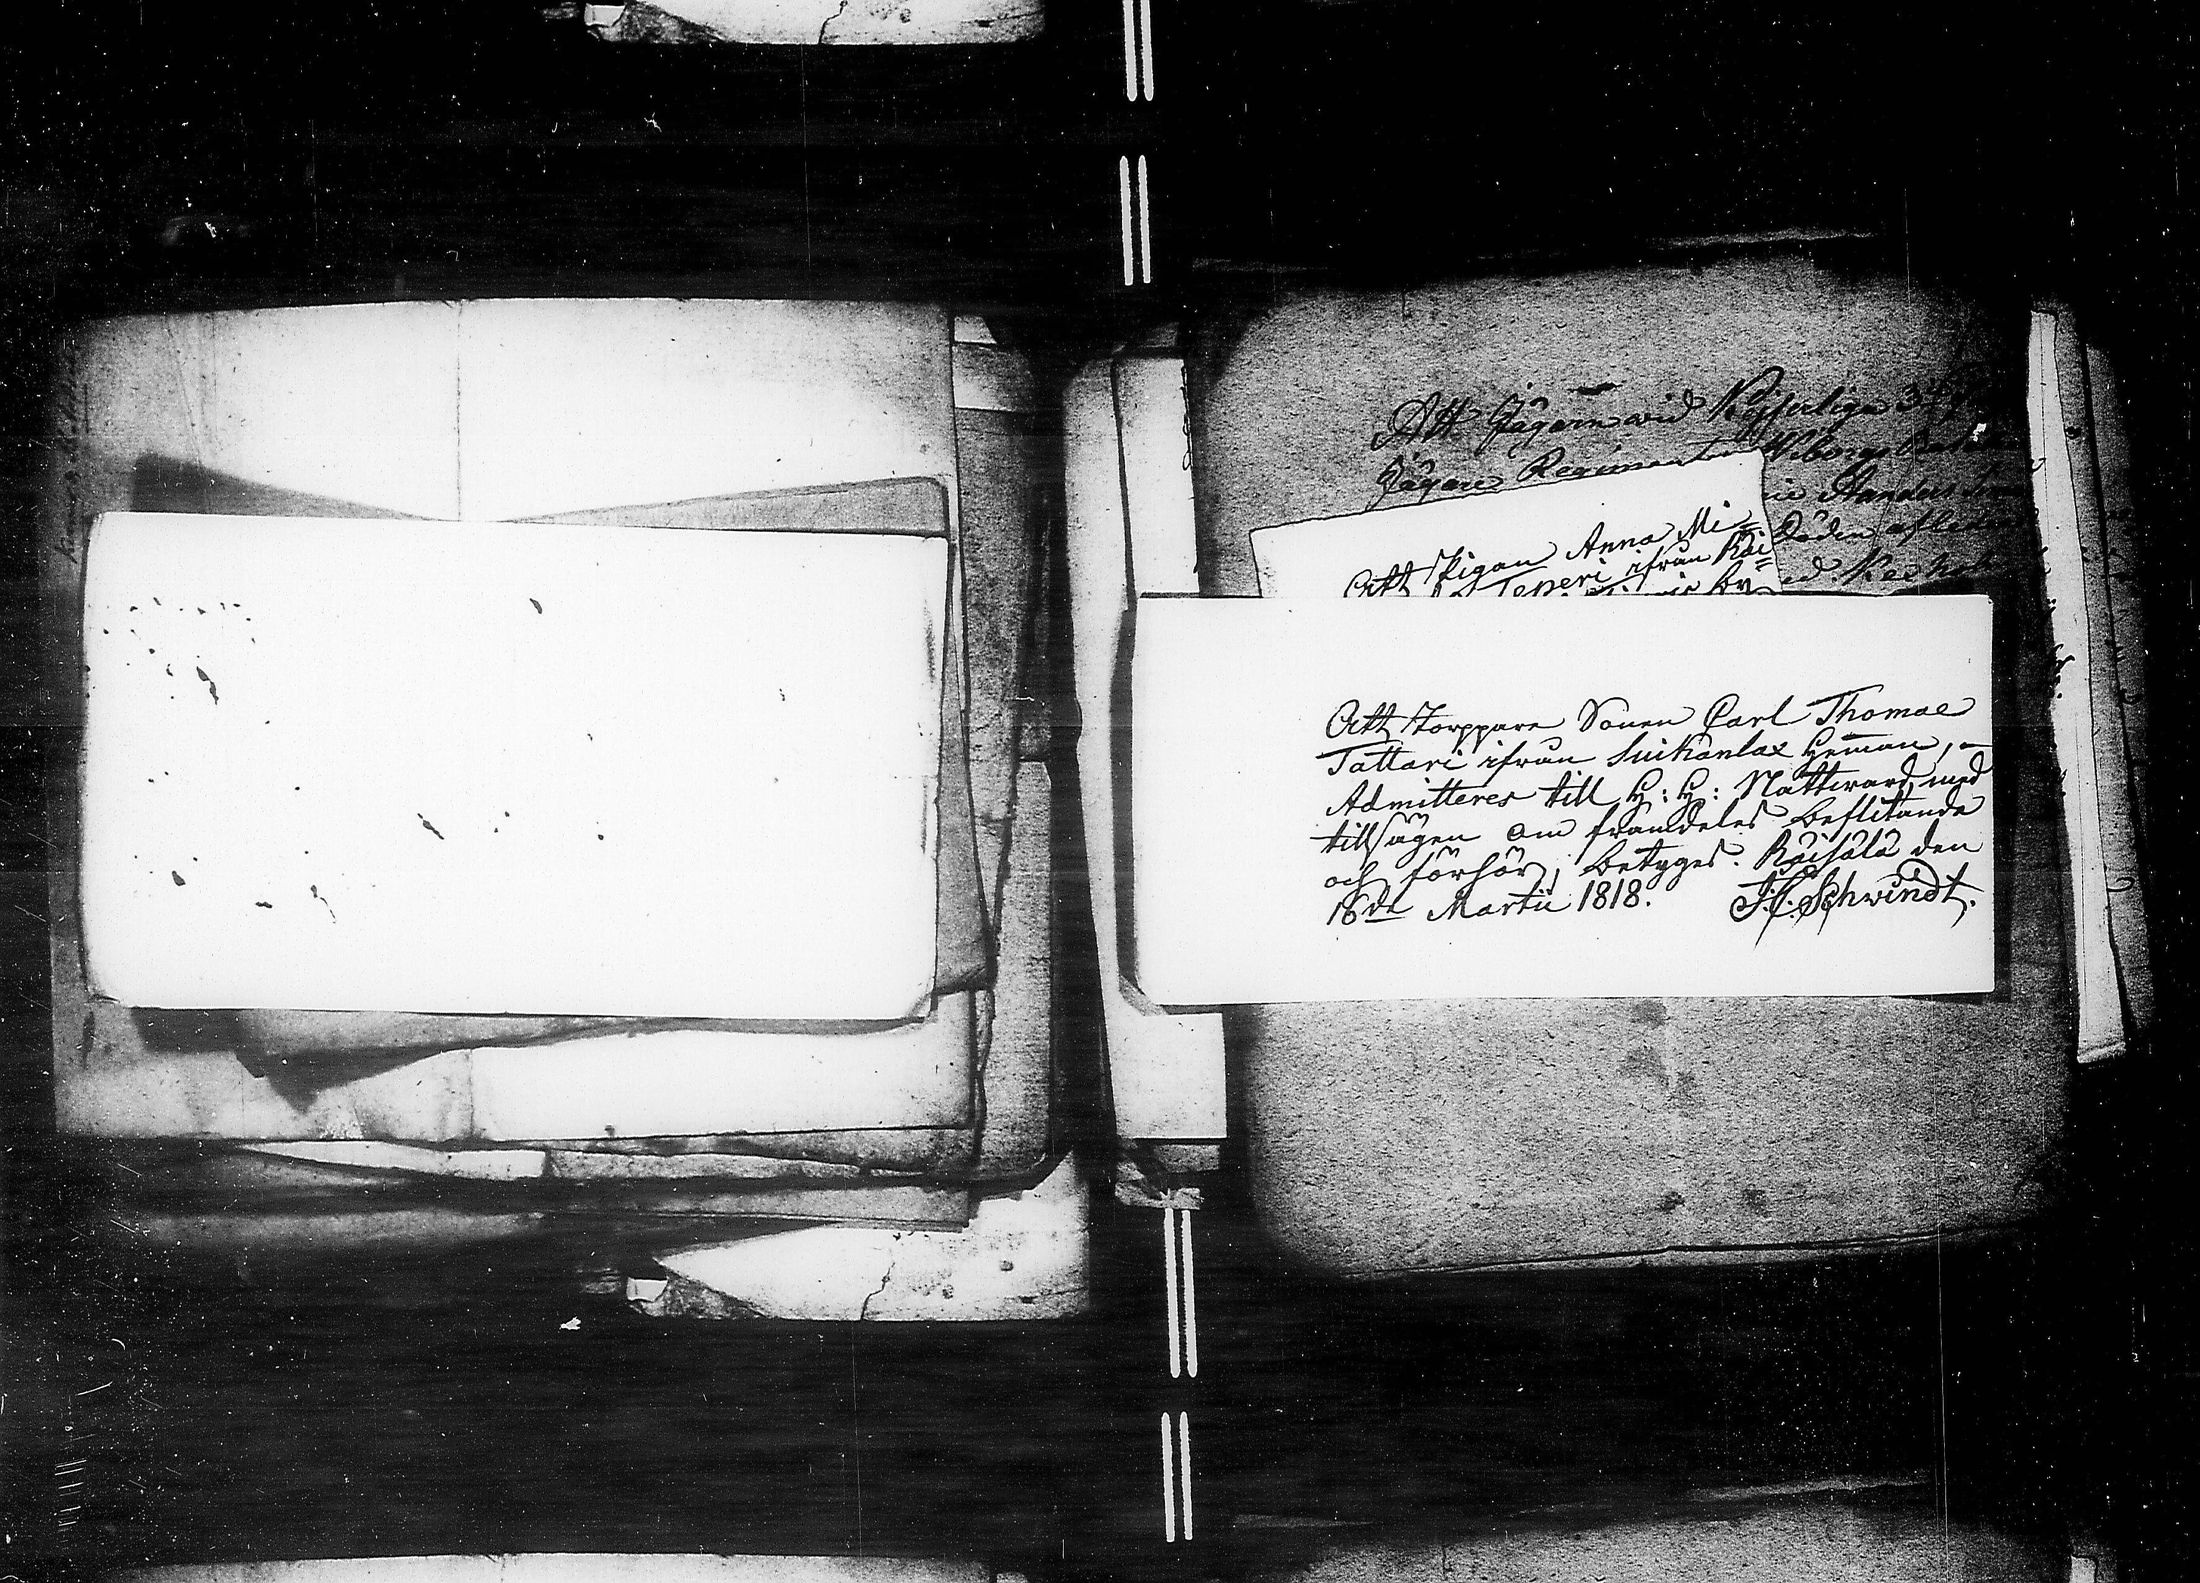 Att Jägarn wid Kejserliga 3dje
Jägare Regimentet Wiborgs
Anders
Döden afleden
Att Pigan Anna Mi=
Teperi ifrån Räi=
Att Torppare Sonen Carl Thomae
Tattari ifrån Suikanlax Heman,
Admitteres till H: H: Nattward, med
tillsägen om framdeles beflitande
och förhör, betyges. Räisälä den
16de Martii 1818. J. C. Schwindt.